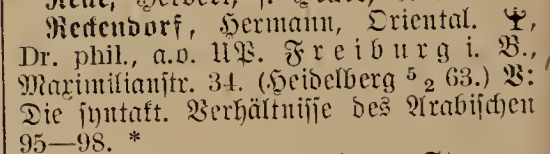 Reckendorf, Hermann, Oriental.
Dr. phil., a.o. UP. Freiburg i. B.,
Maximilianstr. 34. (Heidelberg 5 2 63.) V:
Die syntakt. Verhältnisse des Arabischen
95—98. *